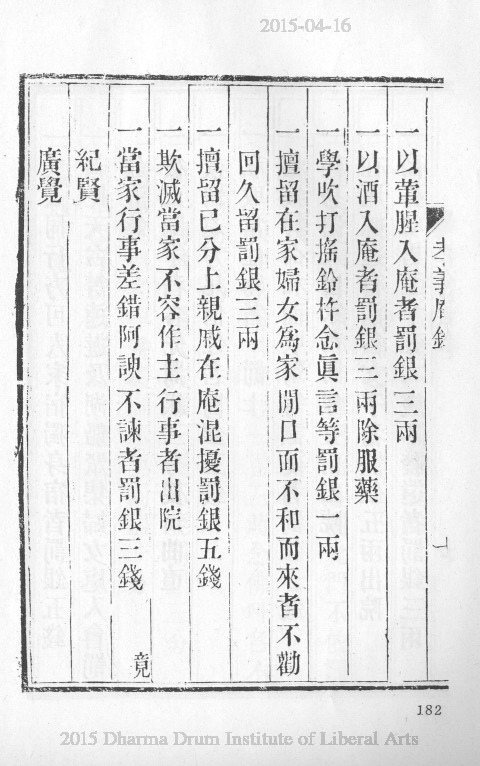 2015-04-16
孝義庵錄
一以葷腥入庵者罰銀三兩
一以酒入庵者罰銀三兩除服藥
一學吹打搖鈴杵念眞言等罰銀一兩
一擅留在家婦女爲家閒口面不和而來者不勸
回久留罰銀三兩
一擅留已分上親戚在庵混擾罰銀五錢
一欺滅當家不容作主行事者出院
一當家行事差錯阿諛不諫者罰銀三錢 竟
紀賢
廣覺
182
2015 Dharma Drum Institute of Liberal Arts